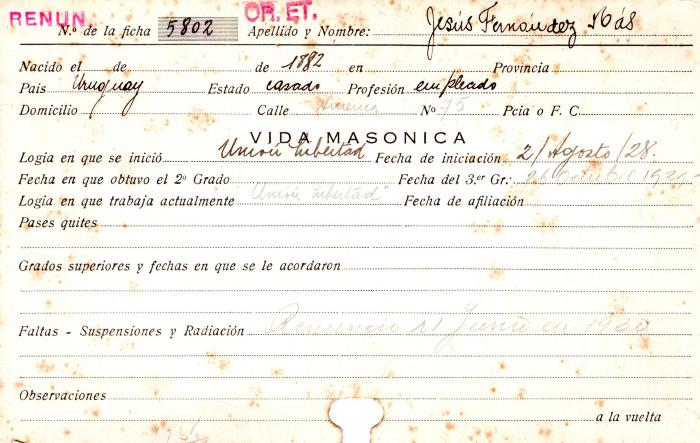 RENUN. OR. ET.
N.º de la ficha 5802 Apellido y Nombre: Jesús Fernández Más
Nacido el de de 1882 en Provincia
Pais Uruguay Estado casado Profesión empleado
Domicilio Calle Nº 75 Pcia o F. C.
VIDA MASONICA
Logia en que se inició Unión Libertad Fecha de iniciación 2/Agosto/28.
Fecha en que obtuvo el 2º Grado Fecha del 3.er Gr.: 26
Logia en que trabaja actualmente "Unión Libertad" Fecha de afiliación
Pases quites
Grados superiores y fechas en que se le acordaron
Faltas - Suspensiones y Radiación Junio de 1930
Observaciones
a la vuelta